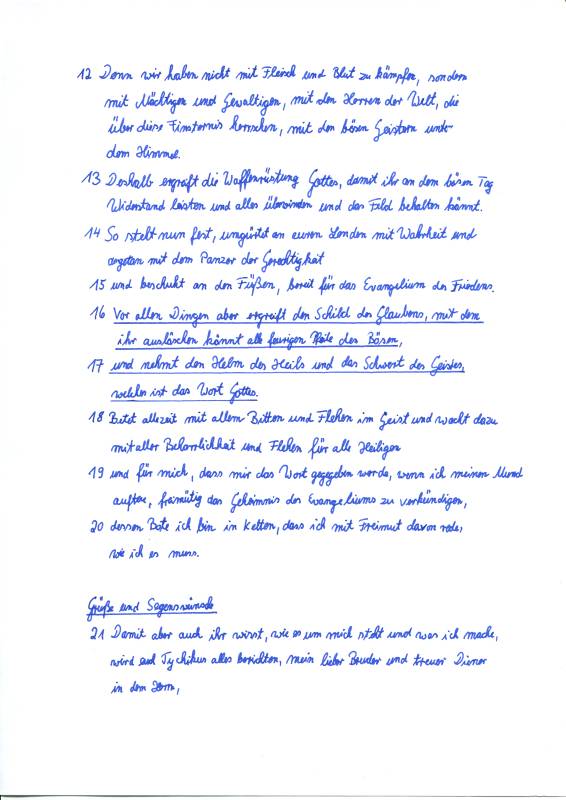 12 Denn wir haben nicht mit Fleisch und Blut zu kämpfen, sondern
mit Mächtigen und Gewaltigen, mit den Herren der Welt, die
über diese Finsternis herrschen, mit den bösen Geistern unter
dem Himmel.
13 Deshalb ergreift die Waffenrüstung Gottes, damit ihr an dem bösen Tag
Widerstand leisten und alles überwinden und das Feld behalten könnt.
14 So steht nun fest, umgürtet an euren Lenden mit Wahrheit und
angetan mit dem Panzer der Gerechtigkeit
15 und beschuht an den Füßen, bereit für das Evangelium des Friedens.
16 Vor allen Dingen aber ergreift den Schild des Glaubens, mit dem
ihr auslöschen könnt alle feurigen Pfeile des Bösen,
17 und nehmt den Helm des Heils und das Schwert des Geistes,
welches ist das Wort Gottes.
18 Betet allezeit mit allem Bitten und Flehen im Geist und wacht dazu
mit aller Beharrlichkeit und Flehen für alle Heiligen
19 und für mich, dass mir das Wort gegeben werde, wenn ich meinen Mund
auftue, freimütig das Geheimnis des Evangeliums zu verkündigen,
20 dessen Bote ich bin in Ketten, dass ich mit Freimut davon rede,
wie ich es muss.
Grüße und Segenswünsche
21 Damit aber auch ihr wisst, wie es um mich steht und was ich mache,
wird euch Tychikus alles berichten, mein lieber Bruder und treuer Diener
in dem Herrn,